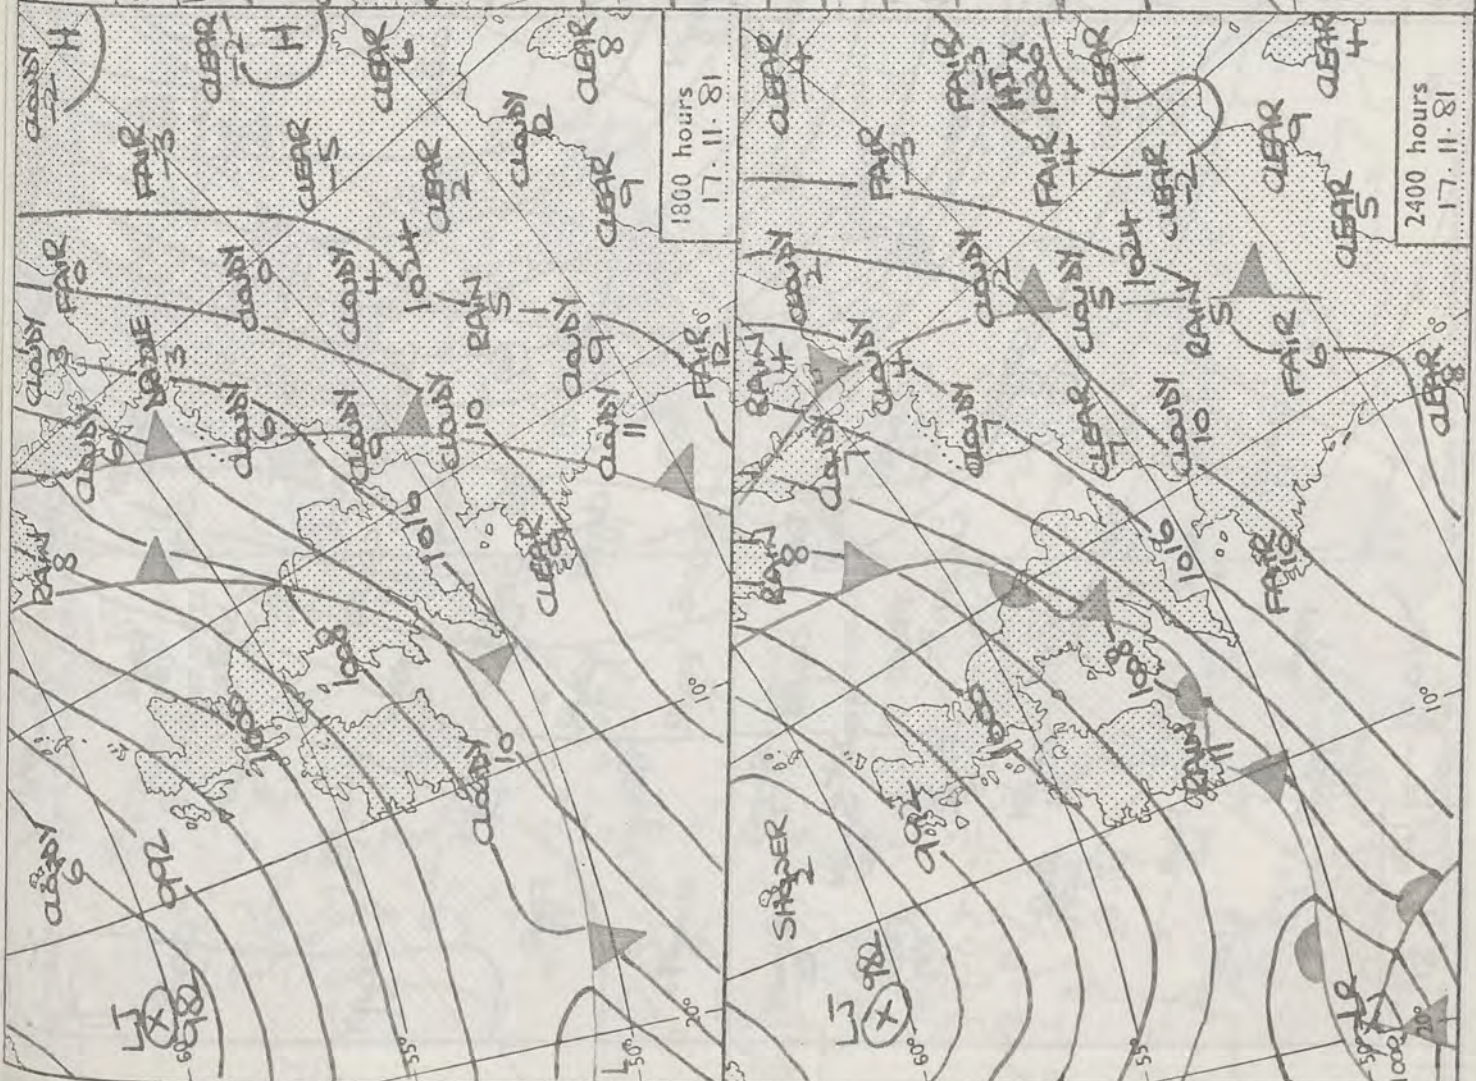 1800 hours
17.11.81
CLOUDY
-2
H
CLEAR
-2
H
CLEAR
6
CLEAR
8
FAIR
-3
CLEAR
-5
CLEAR
2
CLOUDY
12
CLEAR
9
FAIR
0
CLOUDY
0
CLOUDY
4
1024
RAIN
5
CLOUDY
9
FAIR
12
CLOUDY
3
3
CLOUDY
6
CLOUDY
6
CLOUDY
9
CLOUDY
10
CLOUDY
11
RAIN
8
1016
CLEAR
1008
1000
CLOUDY
10
CLOUDY
6
992
LJ
X
982
60°
55°
50°
20°
10°
0°
L
2400 hours
17.11.81
CLEAR
-4
FAIR
-3
HI X
1030
CLEAR
1
CLEAR
4
FAIR
-3
FAIR
-4
CLEAR
-2
CLEAR
9
CLEAR
5
CLOUDY
2
CLOUDY
2
CLOUDY
5
1024
RAIN
5
FAIR
6
CLEAR
8
RAIN
4
CLOUDY
4
CLOUDY
7
CLOUDY
7
CLEAR
7
CLOUDY
10
RAIN
8
1016
FAIR
10
1008
1000
RAIN
11
992
SHOWER
2
LJ
X
982
60°
55°
50°
20°
10°
0°